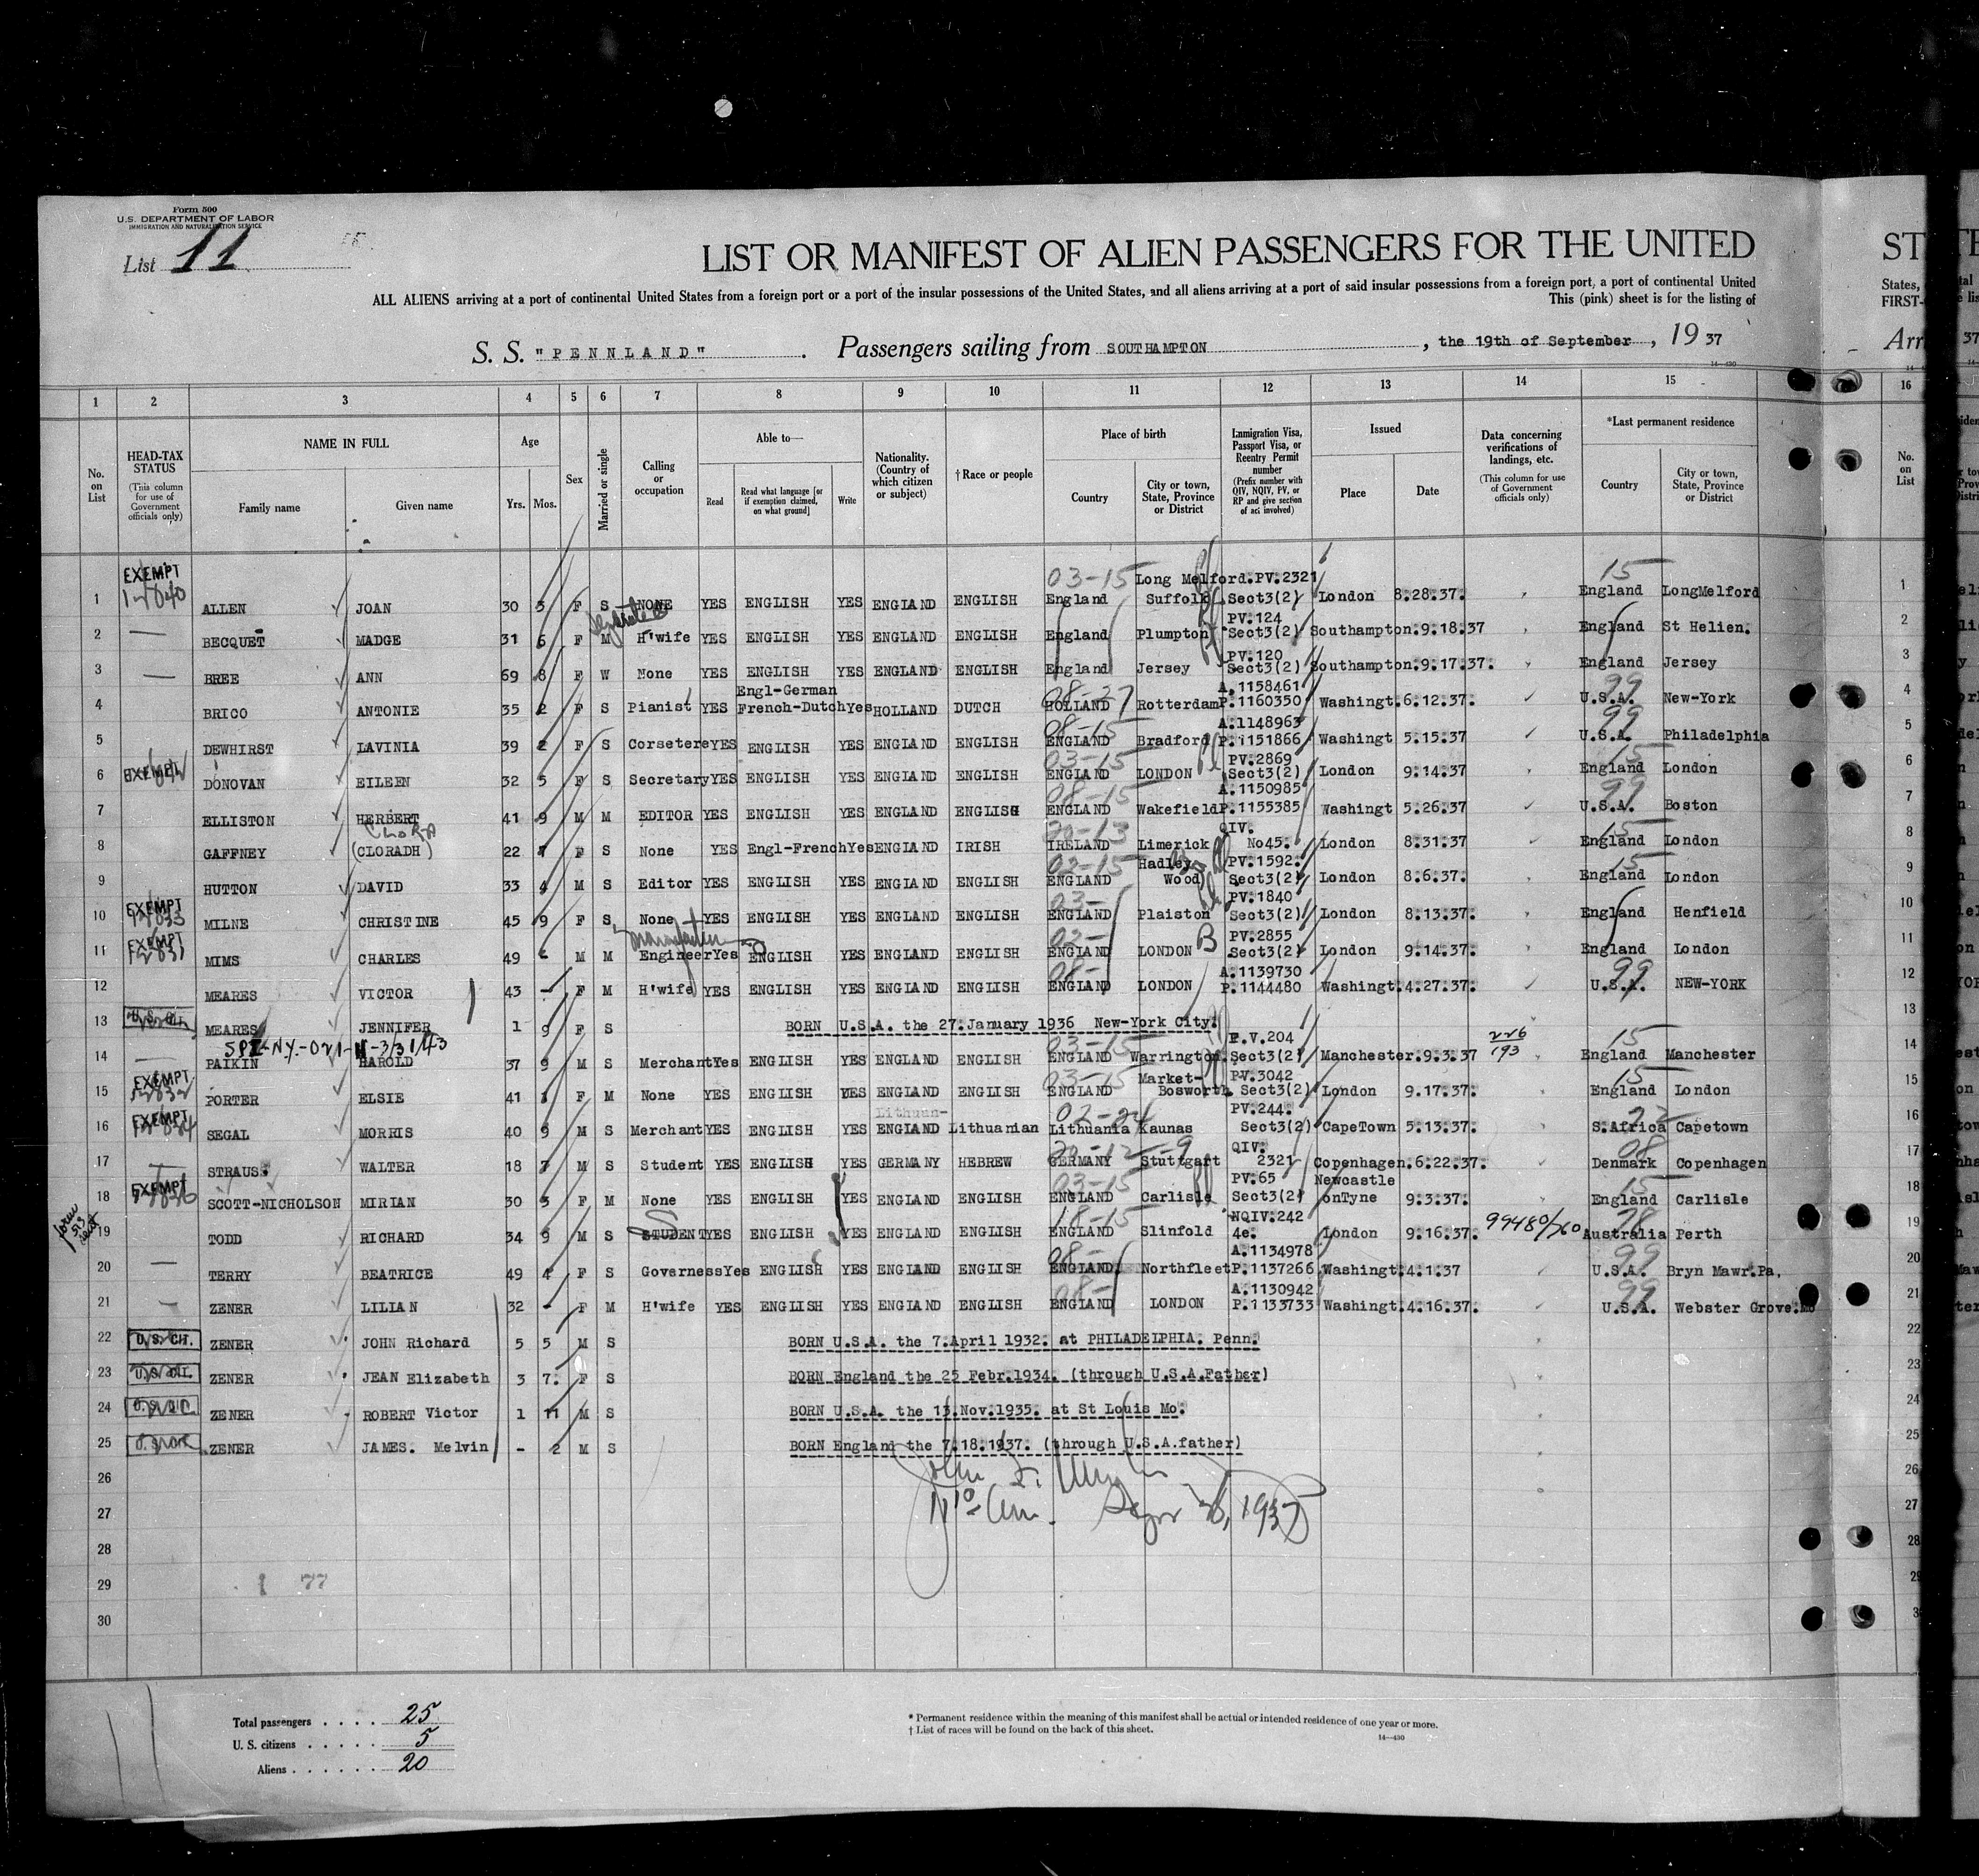 Form 500
U.S. DEPARTMENT OF LABOR
IMMIGRATION AND NATURALIZATION SERVICE
List 11
LIST OR MANIFEST OF ALIEN PASSENGERS FOR THE UNITED
ST
ALL ALIENS arriving at a port of continental United States from a foreign port or a port of the insular possessions of the United States, and all aliens arriving at a port of said insular possessions from a foreign port, a port of continental United
States,
This (pink) sheet is for the listing of
FIRST-
S. S. "PENNLAND" . Passengers sailing from SOUTHAMPTON , the 19th of September , 19 37
Arr
14—430
1 2 3 4 5 6 7 8 9 10 11 12 13 14 15 16
No. on List
HEAD-TAX STATUS (This column for use of Government officials only)
NAME IN FULL
Family name Given name
Age Yrs. Mos.
Sex
Married or single
Calling or occupation
Able to—
Read Read what language [or if exemption claimed, on what ground] Write
Nationality. (Country of which citizen or subject)
† Race or people
Place of birth
Country City or town, State, Province or District
Immigration Visa, Passport Visa, or Reentry Permit number (Prefix number with QIV, NQIV, PV, or RP and give section of act involved)
Issued
Place Date
Data concerning verifications of landings, etc. (This column for use of Government officials only)
*Last permanent residence
Country City or town, State, Province or District
No. on List
EXEMPT 03-15 Long Melford. PV.2321 15
1 ALLEN JOAN 30 5 F S NONE YES ENGLISH YES ENGLAND ENGLISH England Suffolk Sect3(2) London 8.28.37. England LongMelford 1
PV.124
2 BECQUET MADGE 31 6 F M H'wife YES ENGLISH YES ENGLAND ENGLISH England Plumpton Sect3(2) Southampton.9.18.37 England St Helien. 2
PV.120
3 BREE ANN 69 8 F W None YES ENGLISH YES ENGLAND ENGLISH England Jersey Sect3(2) Southampton.9.17.37. England Jersey 3
Engl-German 08-27 A.1158461 99
4 BRICO ANTONIE 35 2 F S Pianist YES French-Dutch Yes HOLLAND DUTCH HOLLAND Rotterdam P.1160350 Washingt.6.12.37. U.S.A. New-York 4
08-15 A.1148963 99
5 DEWHIRST LAVINIA 39 2 F S Corsetere YES ENGLISH YES ENGLAND ENGLISH ENGLAND Bradford P.1151866 Washingt 5.15.37 U.S.A. Philadelphia 5
EXEMPT 03-15 PV.2869 15
6 DONOVAN EILEEN 32 5 F S Secretary YES ENGLISH YES ENGLAND ENGLISH ENGLAND LONDON Sect3(2) London 9.14.37 England London 6
08-15 A.1150985 99
7 ELLISTON HERBERT 41 9 M M EDITOR YES ENGLISH YES ENGLAND ENGLISH ENGLAND Wakefield P.1155385 Washingt 5.26.37 U.S.A. Boston 7
CLORA 20-13 QIV. 15
8 GAFFNEY (CLORADH) 22 7 F S None YES Engl-French Yes ENGLAND IRISH IRELAND Limerick No45. London 8.31.37 England London 8
02-15 Hadley PV.1592. 15
9 HUTTON DAVID 33 4 M S Editor YES ENGLISH YES ENGLAND ENGLISH ENGLAND Wood Sect3(2) London 8.6.37. England London 9
EXEMPT 03- PV.1840
10 MILNE CHRISTINE 45 9 F S None YES ENGLISH YES ENGLAND ENGLISH ENGLAND Plaiston Sect3(2) London 8.13.37. England Henfield 10
EXEMPT 02- B PV.2855
11 MIMS CHARLES 49 - M M Engineer Yes ENGLISH YES ENGLAND ENGLISH ENGLAND LONDON Sect3(2) London 9.14.37. England London 11
08- A.1139730 99
12 MEARES VICTOR 43 - F M H'wife YES ENGLISH YES ENGLAND ENGLISH ENGLAND LONDON P.1144480 Washingt.4.27.37. U.S.A. NEW-YORK 12
U.S. CIT.
13 MEARES JENNIFER 1 9 F S BORN U.S.A. the 27.January 1936 New-York City. 13
03-15 P.V.204 226 193 15
14 PAIKIN HAROLD 37 9 M S Merchant Yes ENGLISH YES ENGLAND ENGLISH ENGLAND Warrington. Sect3(2) Manchester.9.3.37 England Manchester 14
EXEMPT 03-15 Market- PV.3042 15
15 PORTER ELSIE 41 F M None YES ENGLISH YES ENGLAND ENGLISH ENGLAND Bosworth Sect3(2) London 9.17.37. England London 15
EXEMPT Lithuan- 02-24 PV.244.
16 SEGAL MORRIS 40 9 M S Merchant YES ENGLISH YES ENGLAND Lithuanian Lithuania Kaunas Sect3(2) CapeTown 5.13.37. S.Africa Capetown 16
QIV. 08
17 STRAUS. WALTER 18 7 M S Student YES ENGLISH YES GERMANY HEBREW GERMANY Stuttgart 2321 Copenhagen.6.22.37. Denmark Copenhagen 17
EXEMPT 03-15 PV.65 Newcastle 15
18 SCOTT-NICHOLSON MIRIAN 30 5 F M None YES ENGLISH YES ENGLAND ENGLISH ENGLAND Carlisle Sect3(2) onTyne 9.3.37. England Carlisle 18
18-15 NQIV.242 78
19 TODD RICHARD 34 9 M S STUDENT YES ENGLISH YES ENGLAND ENGLISH ENGLAND Slinfold 4e. London 9.16.37. 99480/760 Australia Perth 19
08- A.1134978 99
20 TERRY BEATRICE 49 4 F S Governess Yes ENGLISH YES ENGLAND ENGLISH ENGLAND. Northfleet P.1137266 Washingt.4.1.37 U.S.A. Bryn Mawr.Pa. 20
08- A.1130942 99
21 ZENER LILIAN 32 - F M H'wife YES ENGLISH YES ENGLAND ENGLISH ENGLAND LONDON P.1133733 Washingt.4.16.37. U.S.A. Webster Grove.Mo 21
22 U.S. CIT. ZENER JOHN Richard 5 5 M S BORN U.S.A. the 7.April 1932. at PHILADELPHIA. Penn. 22
23 U.S. CIT. ZENER JEAN Elizabeth 3 7. F S BORN England the 25 Febr.1934. (through U.S.A.Father) 23
24 ZENER ROBERT Victor 1 11 M S BORN U.S.A. the 13.Nov.1935. at St Louis Mo. 24
25 ZENER JAMES. Melvin - 2 M S BORN England the 7.18.1937. (through U.S.A.father) 25
26 26
27 27
28 28
29 1 77 29
30
Total passengers . . . . 25
U. S. citizens . . . . . 5
Aliens . . . . . . 20
* Permanent residence within the meaning of this manifest shall be actual or intended residence of one year or more.
† List of races will be found on the back of this sheet.
14—430